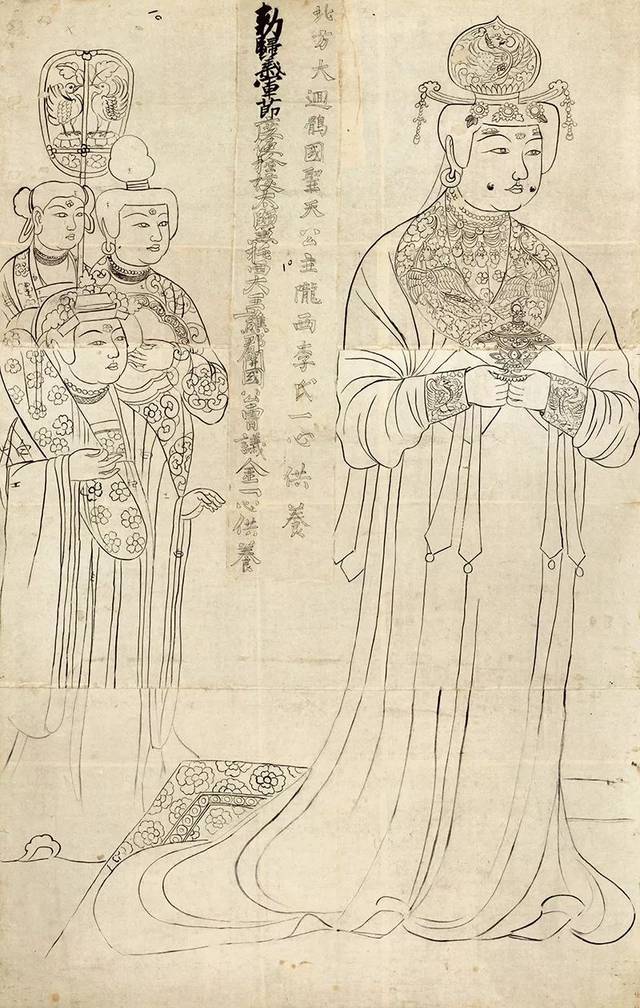 北方大迴鶻國聖天公主隴西李氏一心供養
勅歸義軍節度使檢校太師兼西大王譙郡開國公曹議金一心供養